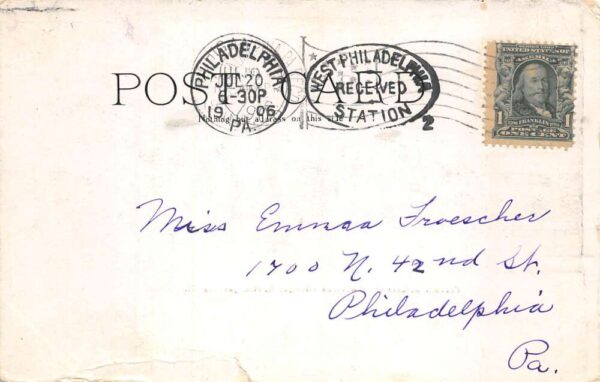 POST CARD
Nothing but address on this side
PHILADELPHIA
JUL 20
6-30P
1906
PA.
WEST PHILADELPHIA
RECEVED
STATION
2
UNITED STATES OF
AMERICA
1 FRANKLIN 1
POSTAGE
ONE CENT
Miss Emma Froescher
1700 N. 42nd St.
Philadelphia
Pa.